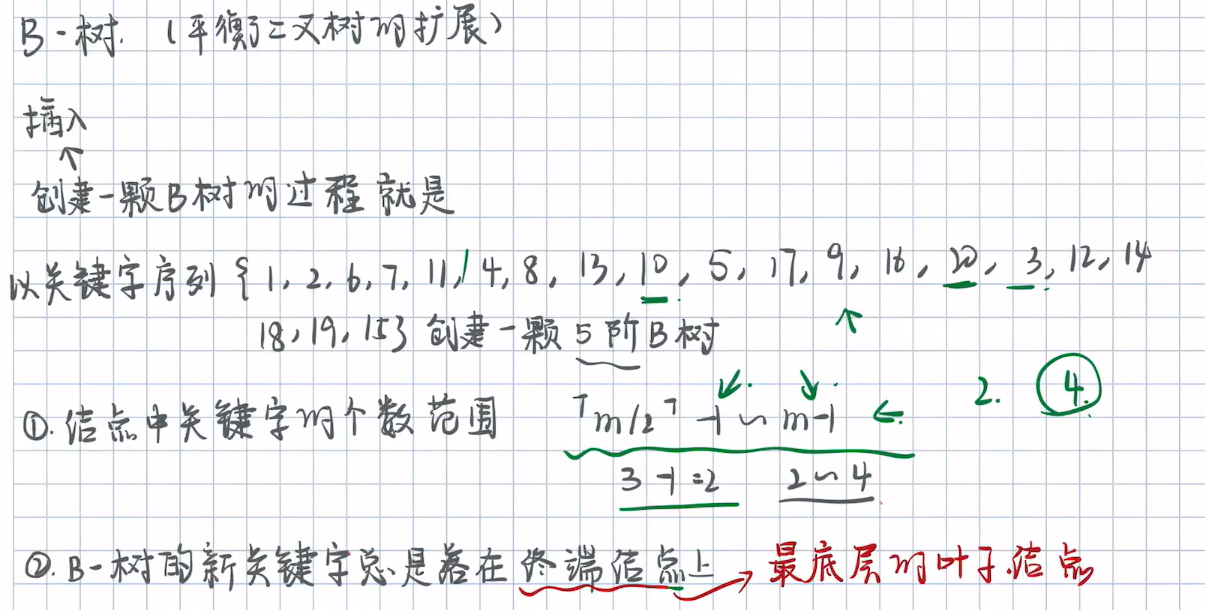 B-树. (平衡二叉树的扩展)
插入
↑
创建一颗B树的过程就是
以关键字序列 { 1, 2, 6, 7, 11, 4, 8, 13, 10, 5, 17, 9, 16, 20, 3, 12, 14
18, 19, 15} 创建一颗 5 阶 B 树
①. 结点中关键字的个数范围 ⌈m/2⌉ -1 ~ m-1 ← 2. 4
3-1=2 2~4
②. B-树的新关键字总是落在终端结点上 → 最底层的叶子结点